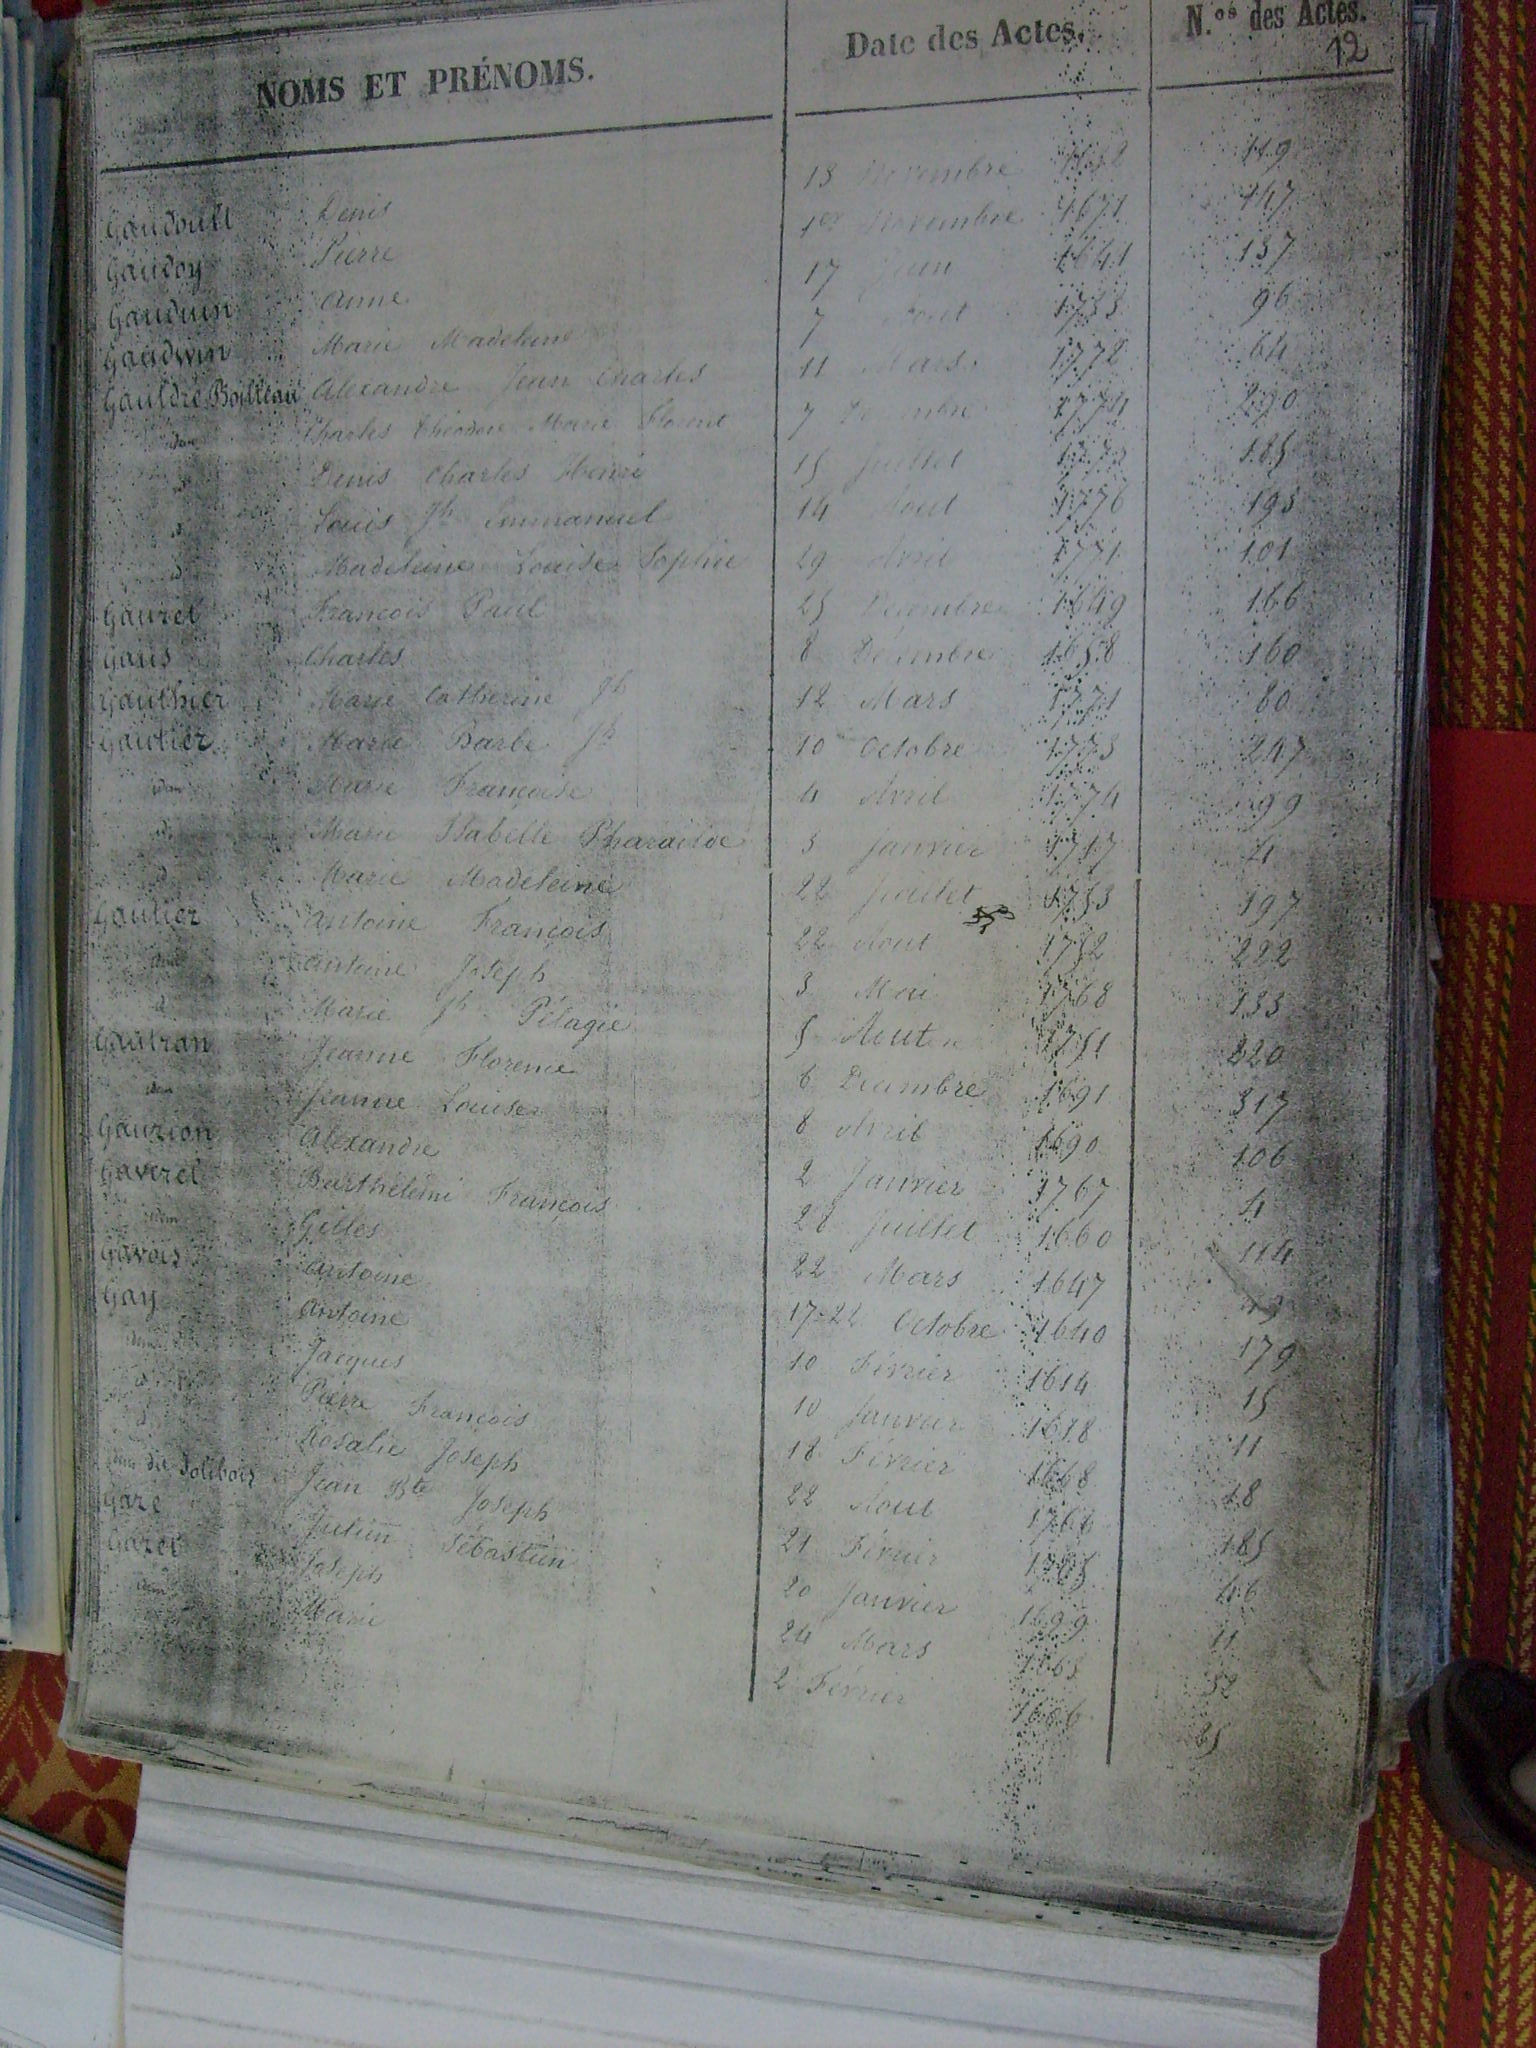 NOMS ET PRÉNOMS. Date des Actes. N.os des Actes.
12
Gaudoult Denis 13 Novembre 119
Gaudoy Pierre 1er Novembre 1671 147
Gauduin Anne 17 Juin 1641 137
Gaudwin Marie Madeleine 7 Aout 1733 96
Gauldrée Boilleau Alexandre Jean Charles 11 Mars 1772 64
idem Charles Théodore Marie Florent 7 290
d Denis Charles Henri 15 Juillet 1773 185
d Louis Jh Emmanuel 14 Aout 1776 193
d Madeleine Louise Sophie 29 Avril 1771 101
Gaurel François Paul 25 Décembre 1649 166
Gaus Charles 8 Décembre 1658 160
Gauthier Marie Catherine Jh 12 Mars 1771 80
Gautier Marie Barbe Jh 10 Octobre 1773 247
idem Marie Françoise 4 Avril 1774 99
d Marie Isabelle Pharailde 3 Janvier 1717 4
d Marie Madeleine 22 Juillet 1753 197
Gautier Antoine François 22 Aout 1752 222
idem Antoine Joseph 3 Mai 1768 133
d Marie Jh Pélagie 5 Aout 1751 220
Gautran Jeanne Florence 6 Decembre 1691 317
idem Jeanne Louise 8 Avril 1690 106
Gauzion Alexandre 2 Janvier 1767 4
Gaverel Barthélemi François 28 Juillet 1660 114
idem Gilles 22 Mars 1647
Gavois Antoine 17-22 Octobre 1640 179
Gay Antoine 10 Février 1614 15
idem Jacques 10 Janvier 1618 11
d Pierre François 18 Février 1668 18
d Rosalie Joseph 22 Aout 1766 185
dit Jolibois Jean Bte Joseph 21 Février 46
Gaze Julien Sébastien 20 Janvier 1699 11
Gazet Joseph 24 Mars 1663 52
idem Marie 2 Février 1666 25